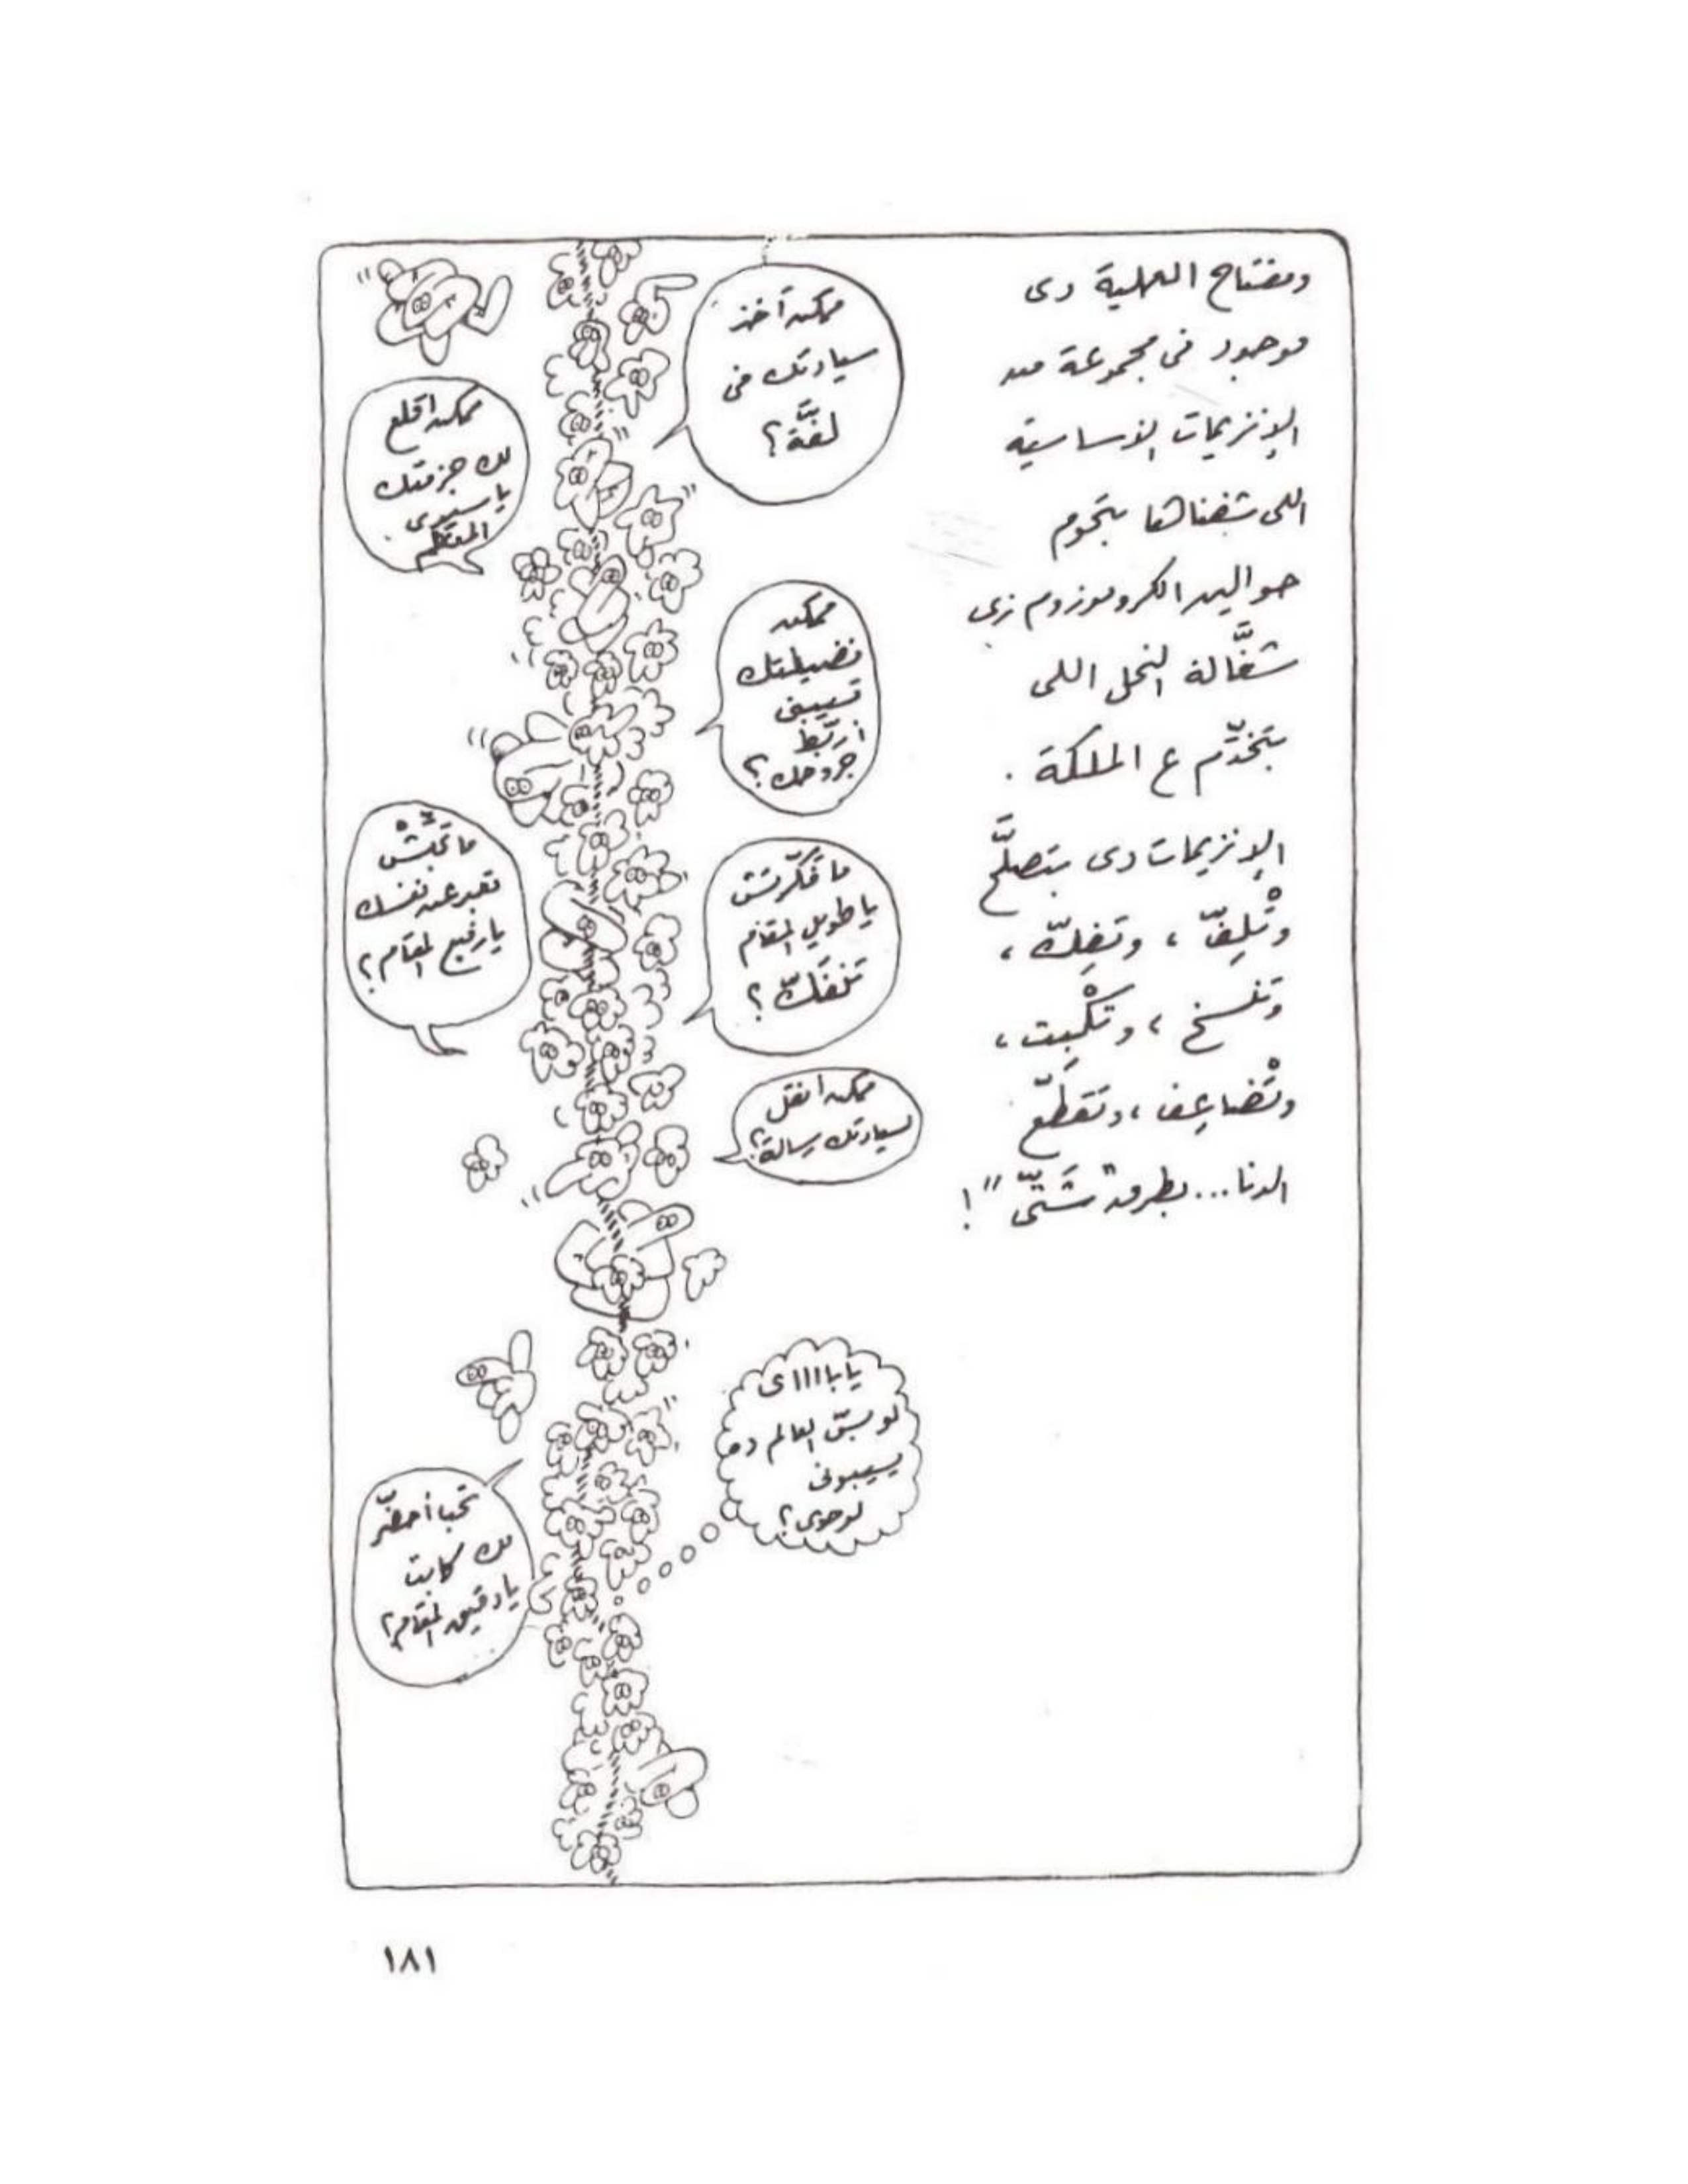 ومفتاح العملية دى
موجود فى مجموعة من
الإنزيمات الأساسية
اللى شفناها بتحوم
حوالين الكروموزوم زى
شغَّالة النحل اللى
بتخدّم ع الملكة .
الإنزيمات دى بتصلَّح
وتْلِفّ ، وتفِكّ ،
وتنسخ ، وتكْبِت ،
وتْضاعِف ، وتقطَّع
الدنا ... بطرق " شَتَّى " !
ممكن آخذ
سيادتك فى
لفَّة ؟
ممكن أقلع
لك جزمتك
يا سيدى
المعظم
ممكن
فضيلتك
تسيبنى
أربَّط
جروحك ؟
ما تحبِّشْ
تعبر عن نفسك
يا رفيع المقام ؟
ما فكَّرتش
يا طويل المقام
تنفَكّ ؟
ممكن أنقل
لسيادتك رسالة ؟
يا باااااى
لو بسّ العالم ده
يسيبونى
لوحدى ؟
تحب أحضَّر
لك كابت
يا دقيق المقام ؟
١٨١